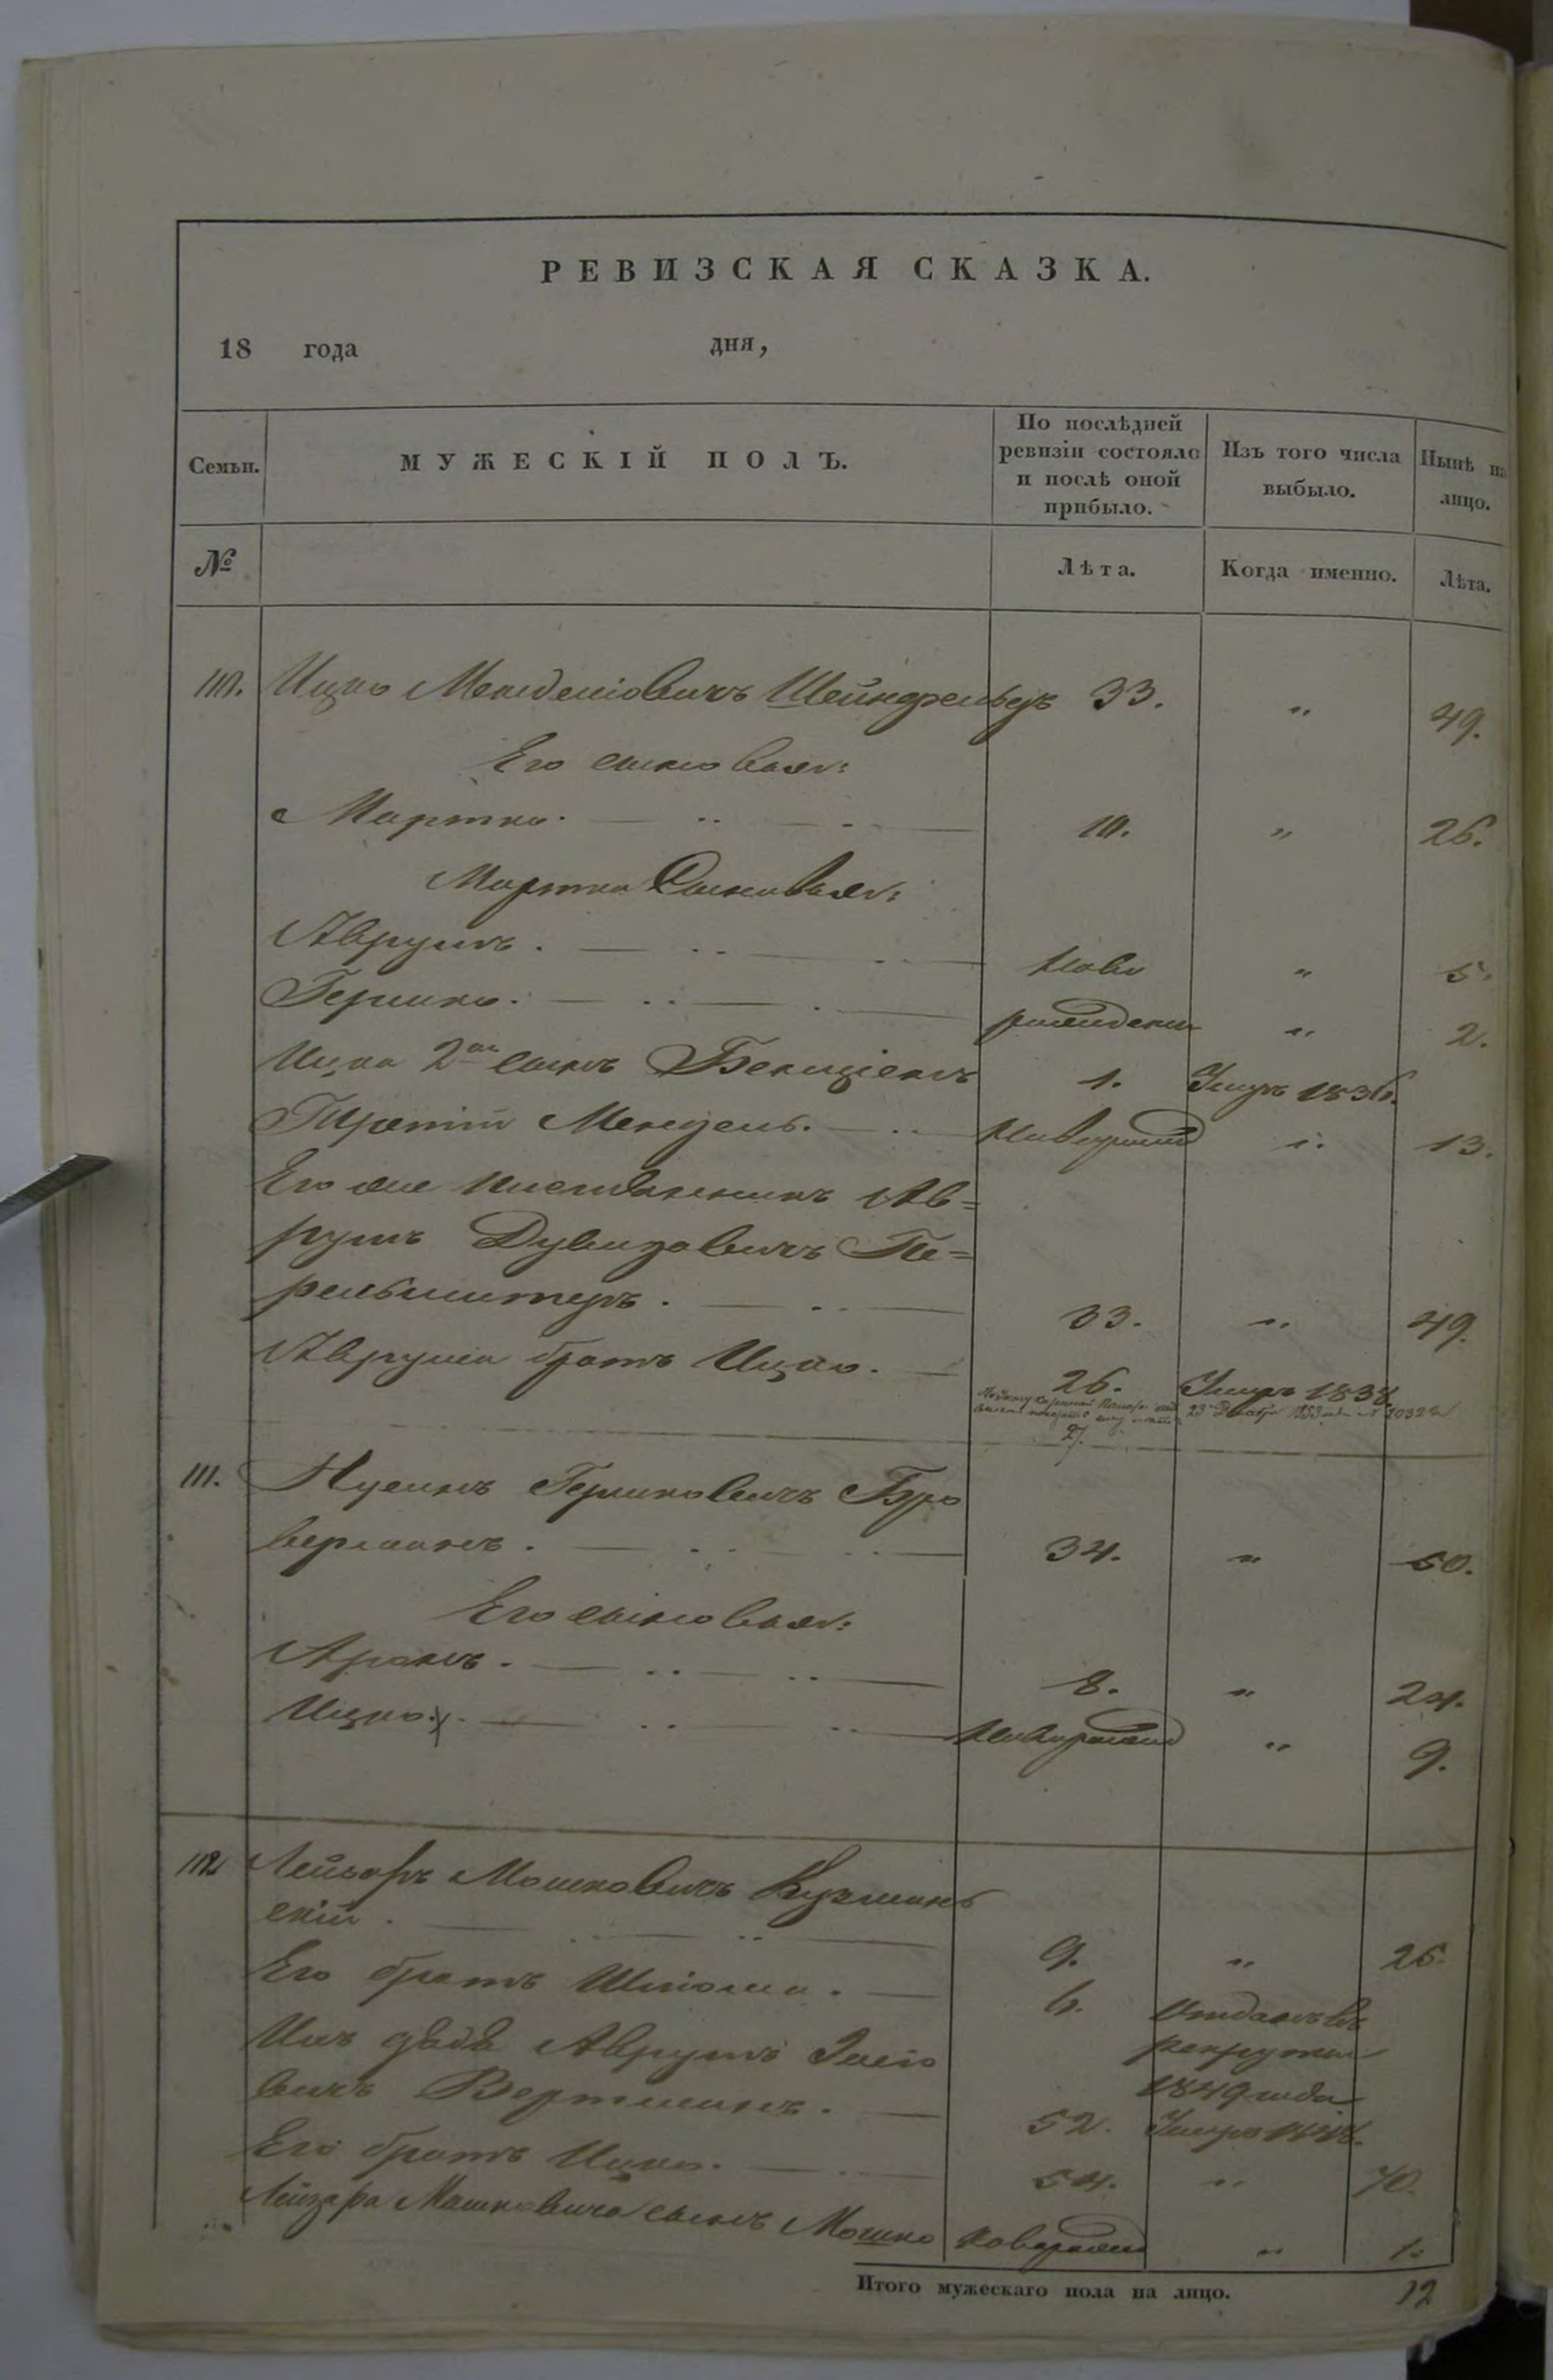 РЕВИЗСКАЯ СКАЗКА.
18 года дня,
Семьи. МУЖЕСКІЙ ПОЛЪ. По послѣдней ревизіи состояло и послѣ оной прибыло. Изъ того числа выбыло. Нынѣ на лицо.
№ Лѣта. Когда именно. Лѣта.
110. Ицко Мендлiовичъ Шейнфельдъ 33. " 49.
Его сыновья:
Мортко. 10. " 26.
Мортка Сыновья:
Аврумъ. ново " 5.
Гершко. рожденн " 2.
Ицка 2й сынъ Бенціонъ 1. Умеръ 1836.
Третій Мендель. Новорожд " 13.
Его же племянникъ Ав=
румъ Дувидовичъ Пе=
рельмитеръ. 33. " 49.
Аврума братъ Ицко. 26. Умеръ 1838
Казенной Палаты 23 Декабря 1853
27.
111. Нусинъ Гершковичъ Бро
верманъ. 34. " 50.
Его сыновья:
Аронъ. 8. " 24.
Ицко. Новорожд " 9.
112. Лейзоръ Мошковичъ Кузминъ
скій. 9. " 26.
Его братъ Шлiома. 6. Отданъ въ
рекруты
1849 года
Ихъ дядя Аврумъ Iосiо
вичъ Вертманъ. 52. Умеръ 1848.
Его братъ Ицко. 54. " 70.
Лейзора Мошковича сынъ Мошко новорожд " 1.
Итого мужескаго пола на лицо. 12